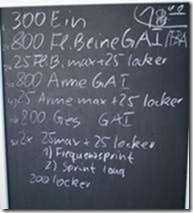 300 Ein
800 Fl. Beine GAI / BA
25 Fl. B. max + 25 locker
800 Arme GAI
25 Arme max + 25 locker
800 Ges GAI
2x 25 max + 25 locker
1) Frequenzsprint
2) Sprint lang
200 locker